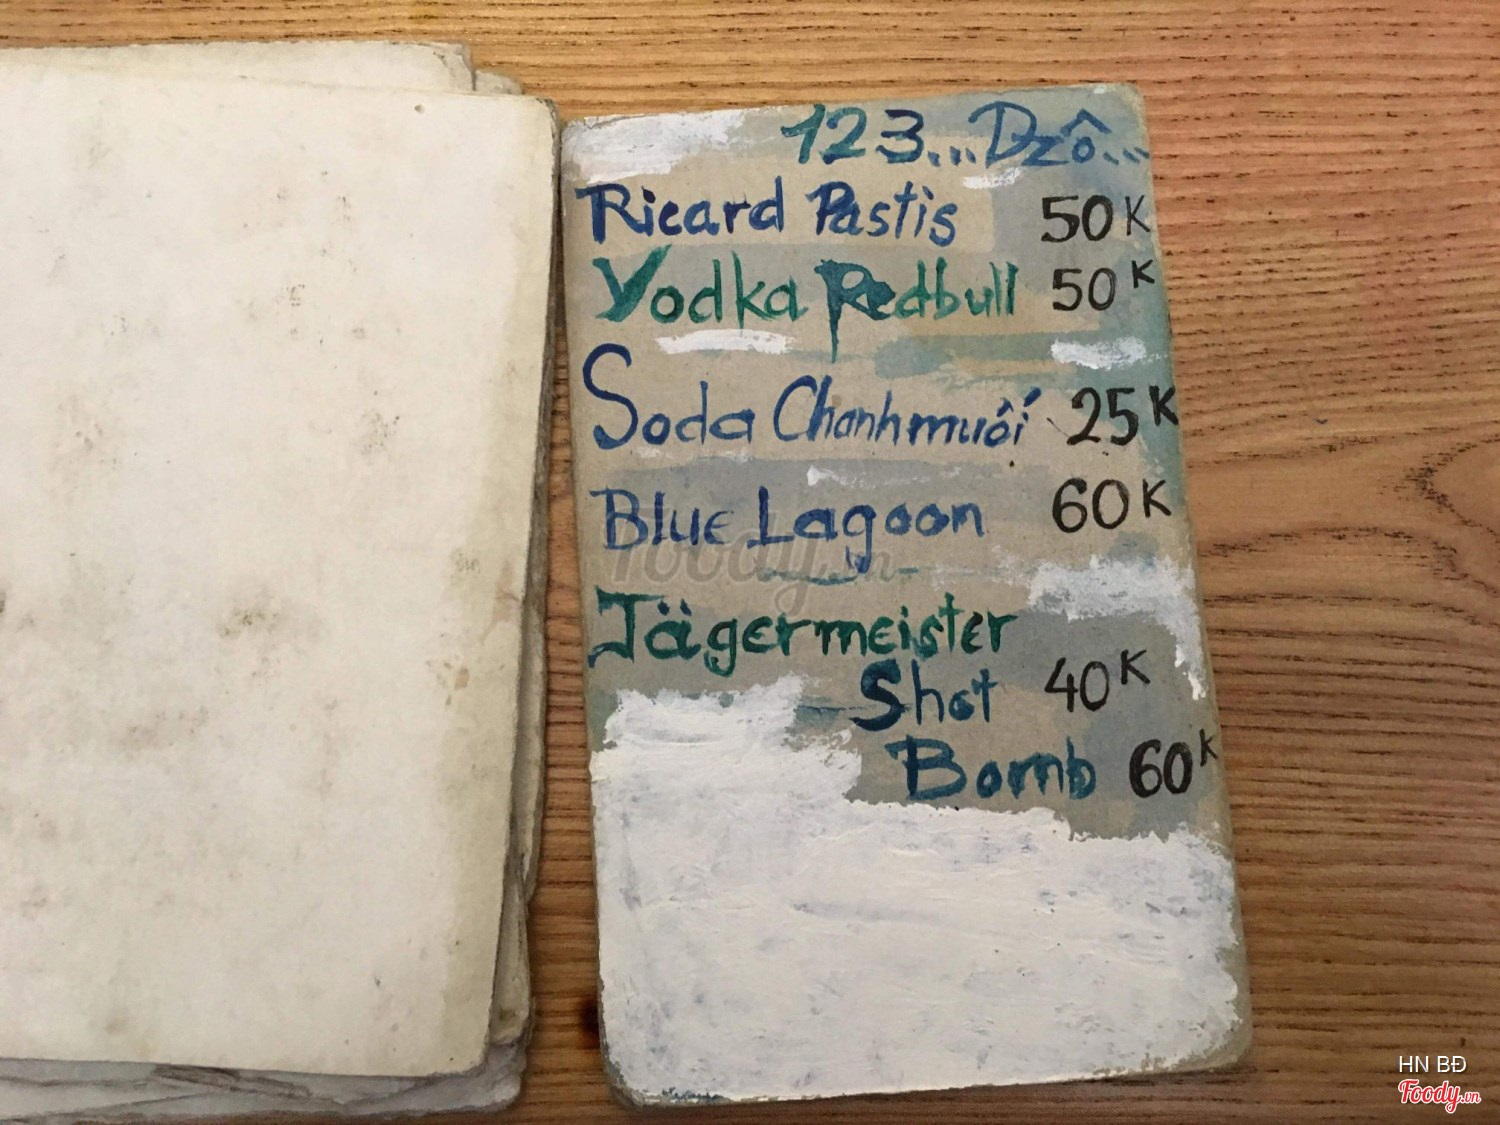 123...Dzô...
Ricard Pastis 50K
Vodka Redbull 50K
Soda Chanh muối 25K
Blue Lagoon 60K
foody.vn
Jägermeister
Shot 40K
Bomb 60K
HN BĐ
Foody.vn